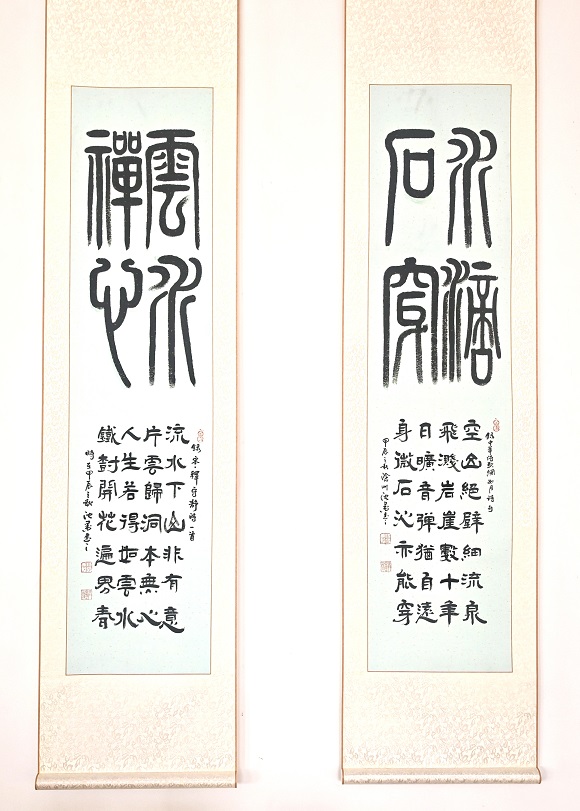 水滴
石穿
錄中華詩詞網如月詩句
空山絕壁細流泉
飛濺岩崖數十年
日曠音弹猶自遠
身微石沁亦能穿
甲辰之秋
雲水
禪心
錄宋釋守静詩一首
流水下山非有意
片雲歸洞本無心
人生若得如雲水
鐵樹開花遍界春
時在甲辰之秋